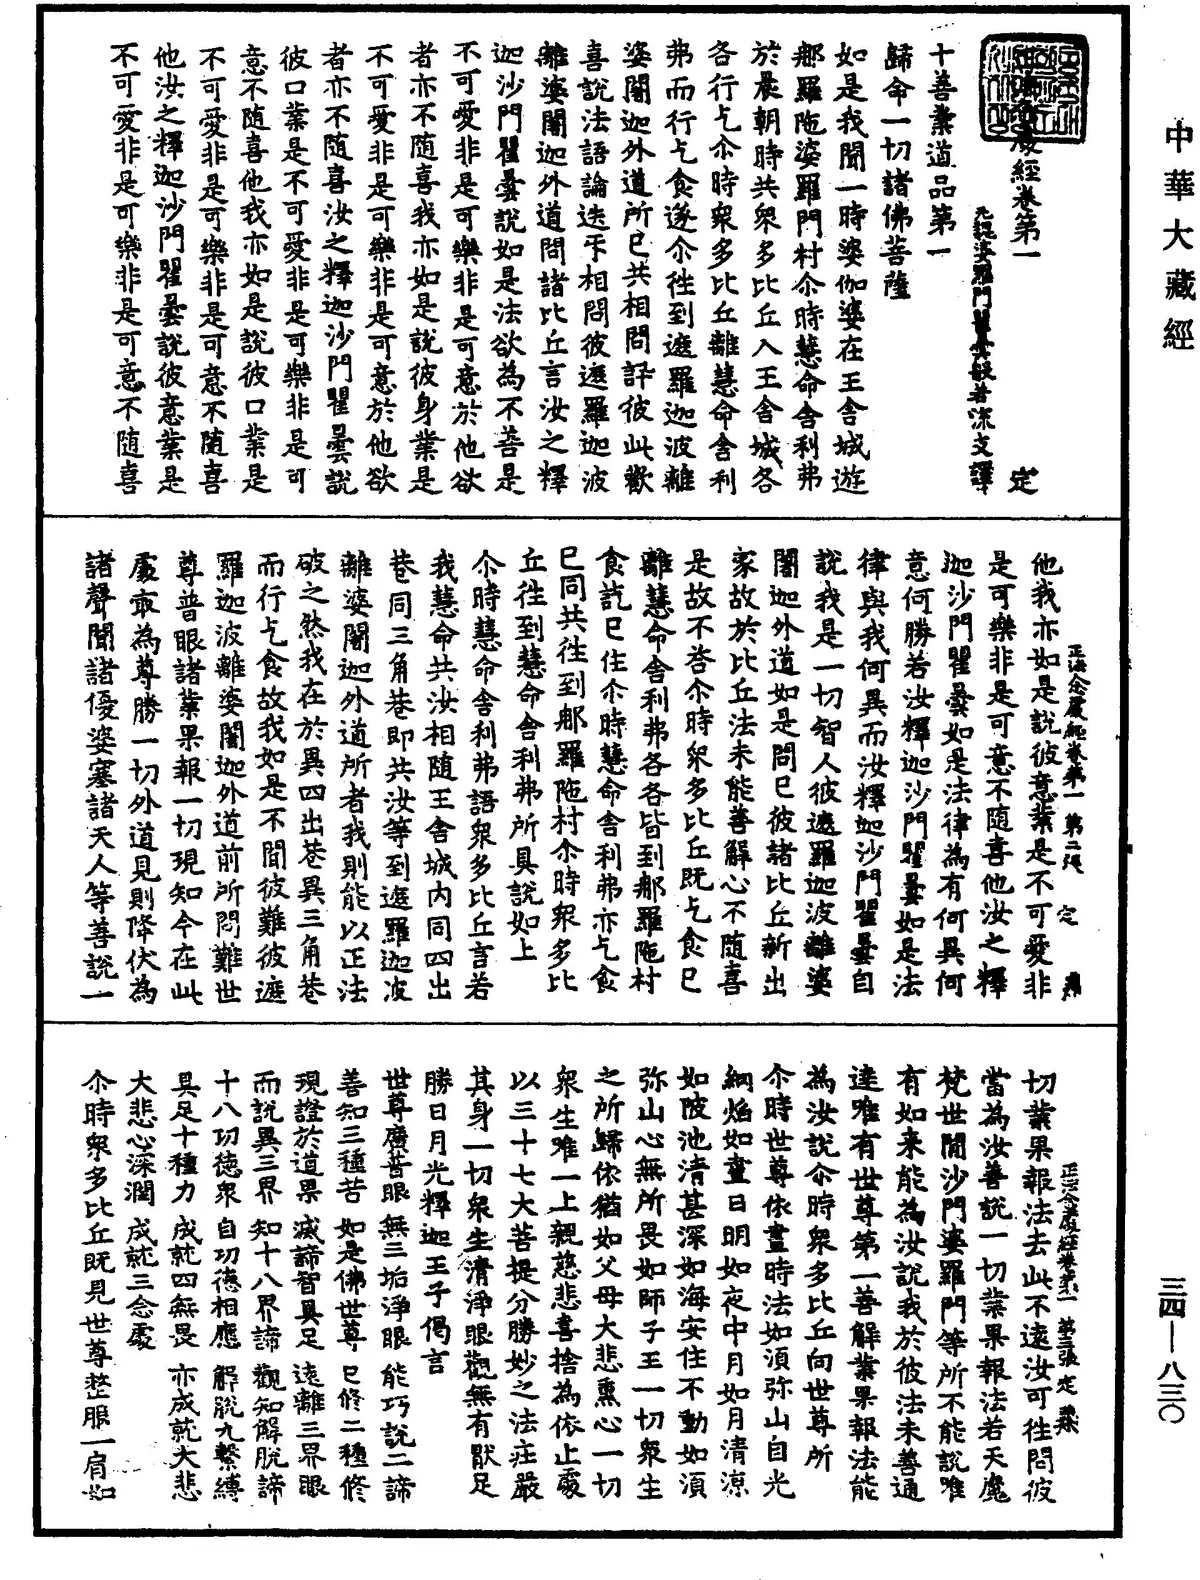 中華大藏經
經卷第一 定
元魏婆羅門瞿曇般若流支譯
十善業道品第一
歸命一切諸佛菩薩
如是我聞一時婆伽婆在王舍城遊
那羅陁婆羅門村尒時慧命舍利弗
於晨朝時共衆多比丘入王舍城各
各行乞尒時衆多比丘離慧命舍利
弗而行乞食遂尒徃到遮羅迦波離
婆闍迦外道所已共相問訊彼此歡
喜說法語論迭㸦相問彼遮羅迦波
離婆闍迦外道問諸比丘言汝之釋
迦沙門瞿曇說如是法欲為不善是
不可愛非是可樂非是可意於他欲
者亦不隨喜我亦如是說彼身業是
不可愛非是可樂非是可意於他欲
者亦不隨喜汝之釋迦沙門瞿曇說
彼口業是不可愛非是可樂非是可
意不隨喜他我亦如是說彼口業是
不可愛非是可樂非是可意不隨喜
他汝之釋迦沙門瞿曇說彼意業是
不可愛非是可樂非是可意不隨喜
正法念處經卷第一 第二張 定
他我亦如是說彼意業是不可愛非
是可樂非是可意不隨喜他汝之釋
迦沙門瞿曇如是法律為有何異何
意何勝若汝釋迦沙門瞿曇如是法
律與我何異而汝釋迦沙門瞿曇自
說我是一切智人彼遮羅迦波離婆
闍迦外道如是問已彼諸比丘新出
家故於比丘法未能善解心不隨喜
是故不荅尒時衆多比丘既乞食已
離慧命舍利弗各各皆到那羅陁村
食訖已住尒時慧命舍利弗亦乞食
已同共徃到那羅陁村尒時衆多比
丘徃到慧命舍利弗所具說如上
尒時慧命舍利弗語衆多比丘言若
我慧命共汝相隨王舍城内同四出
巷同三角巷即共汝等到遮羅迦波
離婆闍迦外道所者我則能以正法
破之然我在於異四出巷異三角巷
而行乞食故我如是不聞彼難彼遮
羅迦波離婆闍迦外道前所問難世
尊普眼諸業果報一切現知今在此
處㝡為尊勝一切外道見則降伏為
諸聲聞諸優婆塞諸天人等善說一
正法念處經卷第一 第三張 定
切業果報法去此不遠汝可徃問彼
當為汝善說一切業果報法若天魔
梵世閒沙門婆羅門等所不能說唯
有如来能為汝說我於彼法未善通
達唯有世尊第一善解業果報法能
為汝說尒時衆多比丘向世尊所
尒時世尊依晝時法如須弥山自光
網焰如晝日明如夜中月如月清涼
如陂池清甚深如海安住不動如須
弥山心無所畏如師子王一切衆生
之所歸依猶如父母大悲熏心一切
衆生唯一上親慈悲喜捨為依止處
以三十七大菩提分勝妙之法莊嚴
其身一切衆生清淨眼觀無有猒足
勝日月光釋迦王子偈言
世尊廣普眼 無三垢淨眼 能巧說二諦
善知三種苦 如是佛世尊 已修二種修
現證於道果 滅諦智具足 遠離三界眼
而說異三界 知十八界諦 觀知解脫諦
十八功德衆 自功德相應 解脫九繫縛
具足十種力 成就四無畏 亦成就大悲
大悲心深潤 成就三念處
尒時衆多比丘既見世尊整服一肩如
三四—八三〇